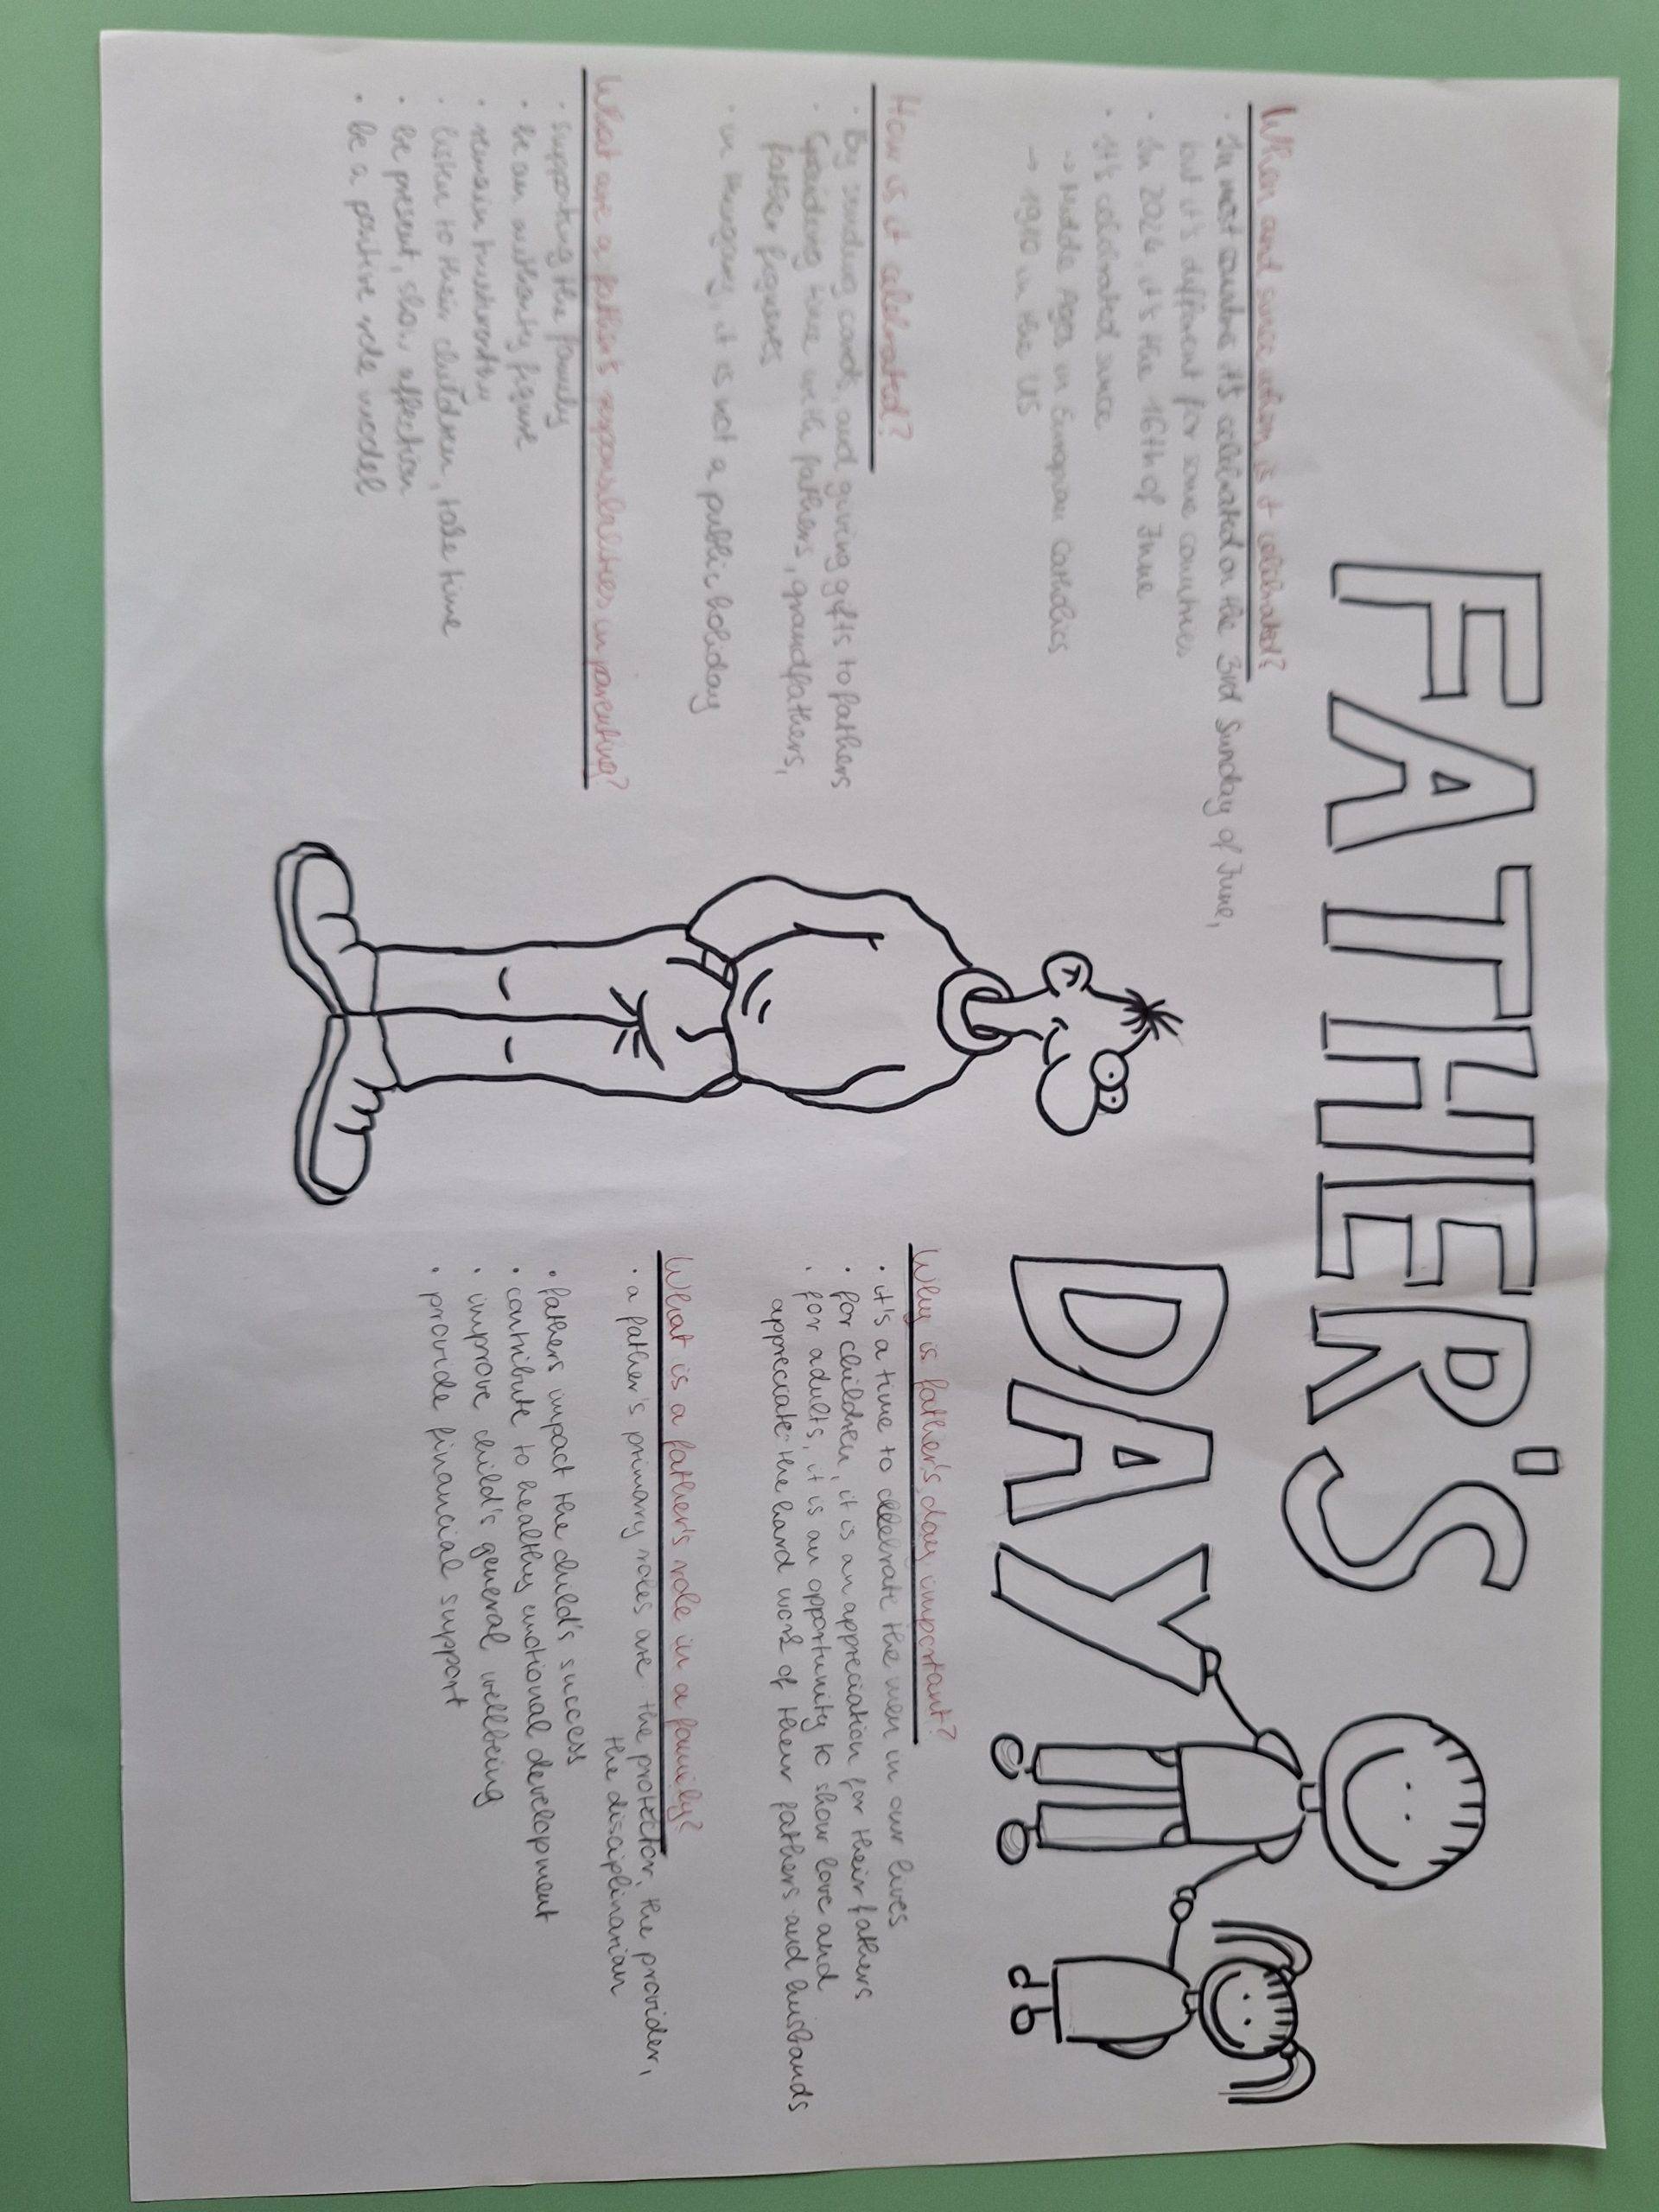 FATHER'S
DAY
When and since when is it celebrated?
· In most countries it's celebrated on the 3rd Sunday of June,
but it's different for some countries
· In 2024, it's the 16th of June
· It's celebrated since
→ Middle Ages in European Catholics
→ 1910 in the US
How is it celebrated?
· By sending cards, and giving gifts to fathers
· Spending time with fathers, grandfathers,
father figures
· in Hungary, it is not a public holiday
What are a father's responsibilities in parenting?
· supporting the family
· be an authority figure
· remain trustworthy
· listen to their children, take time
· be present, show affection
· be a positive role model
Why is father's day important?
· it's a time to celebrate the men in our lives
· for children, it is an appreciation for their fathers
· for adults, it is an opportunity to show love and
appreciate the hard work of their fathers and husbands
What is a father's role in a family?
· a father's primary roles are: the protector, the provider,
the disciplinarian
· fathers impact the child's success
· contribute to healthy emotional development
· improve child's general wellbeing
· provide financial support